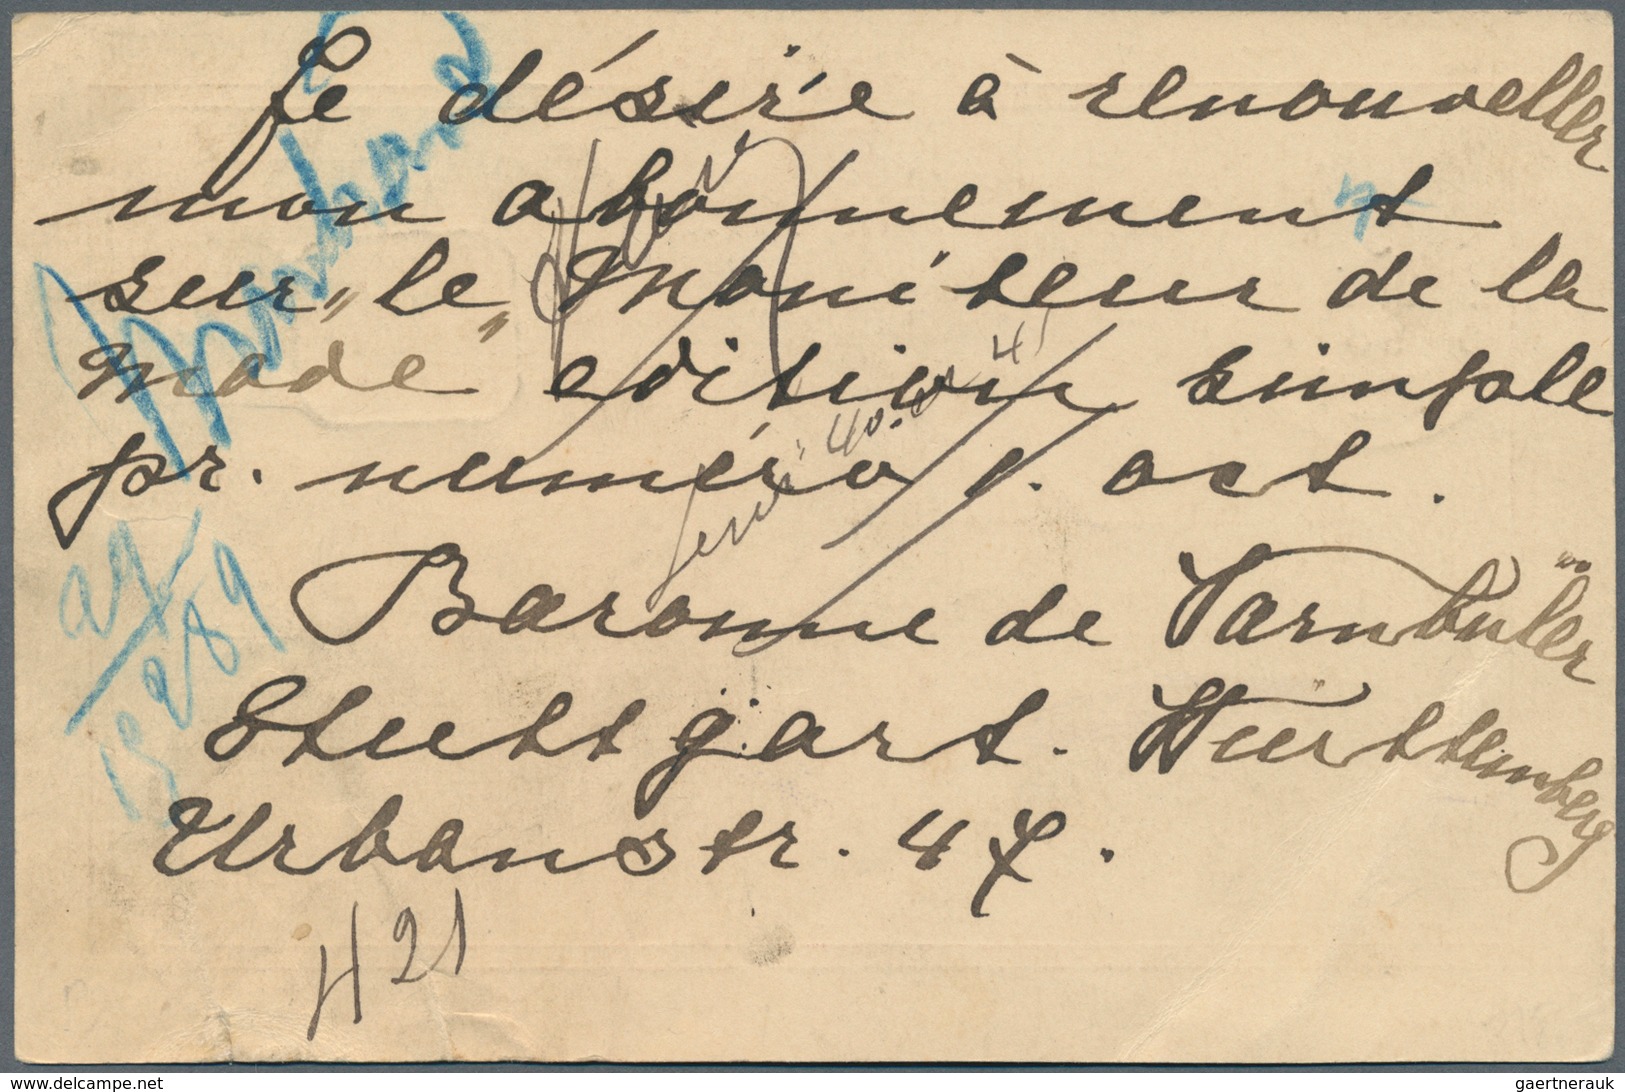 Je désire à renouveller
mon abonnement
sur „le Moniteur de la
Mode" edition simple
pr. numéro 1. oct.
Baronne de Varnbüler
Stuttgart. Württemberg
Urbanstr. 47.
H 21
delcampe.net
gaertnerauk